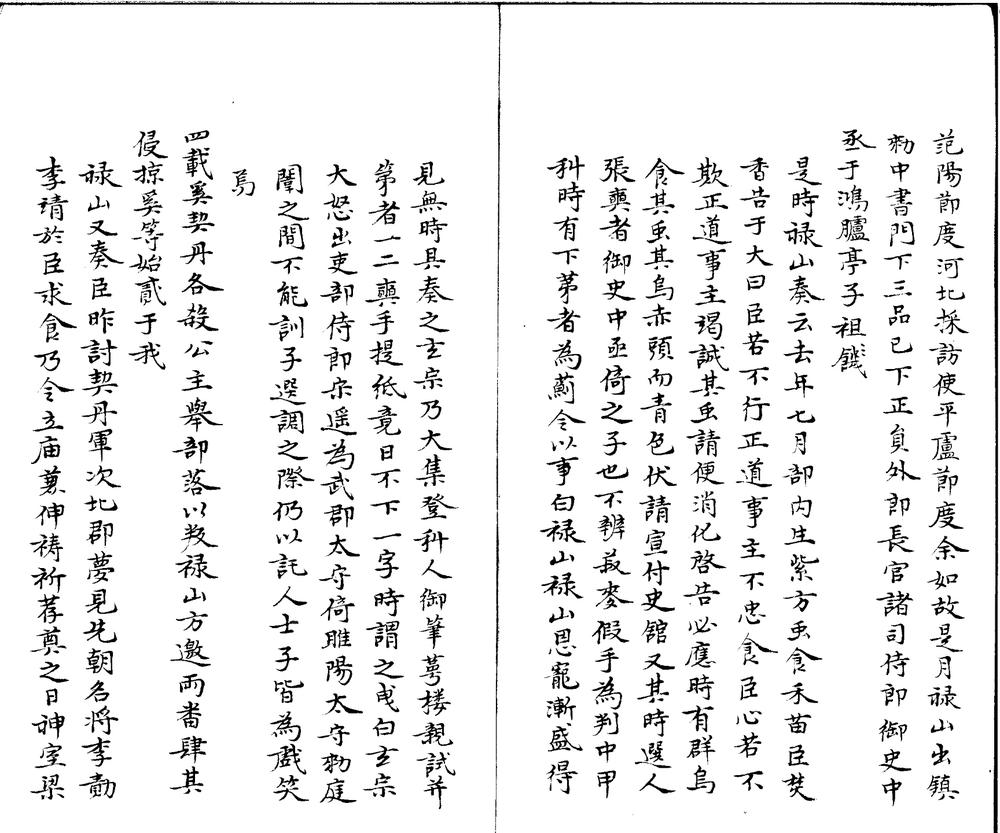 范陽節度河北採訪使平盧節度余如故是月禄山出鎮
勑中書門下三品已下正員外郎長官諸司侍郎御史中
丞于鴻臚亭子祖餞
是時禄山奏云去年七月部内生紫方虫食禾苗臣焚
香告于大曰臣若不行正道事主不忠食臣心若不
欺正道事主竭誠其虫請便消化啓告必應時有群烏
食其虫其烏赤頭而青色伏請宣付史館又其時選人
張奭者御史中丞倚之子也不辨菽麥假手為判中甲
科時有下苐者為薊令以事白禄山禄山恩寵漸盛得
見無時具奏之玄宗乃大集登科人御筆蕚楼親試并
第者一二奭手提紙竟日不下一字時謂之曳白玄宗
大怒出吏部侍郎宋遥為武郡太守倚睢陽太守勑庭
闈之間不能訓子選調之際仍以託人士子皆為戲笑
焉
四載奚契丹各殺公主舉部落以叛禄山方邀兩畨肆其
侵掠奚等始貳于我
禄山又奏臣昨討契丹軍次北郡夢見先朝名将李勣
李靖於臣求食乃令立庙兼伸祷祈荐奠之日神室梁